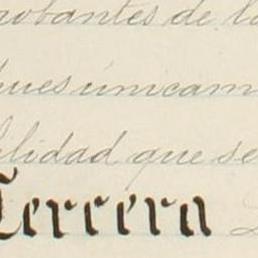 robantes de la
ues únicam
ilidad que se
Tercera